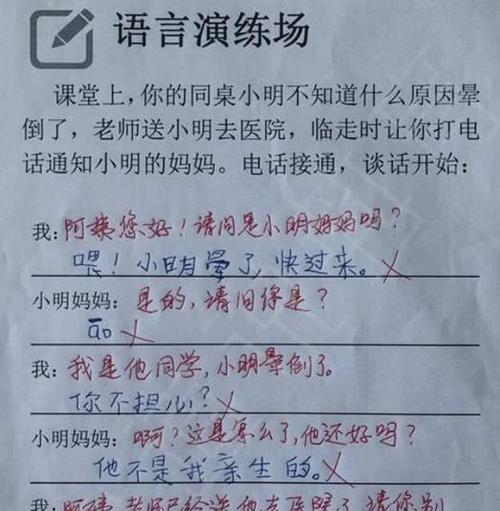 语言演练场
课堂上,你的同桌小明不知道什么原因晕
倒了,老师送小明去医院,临走时让你打电
话通知小明的妈妈。电话接通,谈话开始:
我:阿姨您好!请问是小明妈妈吗?
喂!小明晕了,快过来。
小明妈妈:是的,请问你是?
āo
我:我是他同学,小明晕倒了。
你不担心?
小明妈妈:啊?这是怎么了,他还好吗?
他不是我亲生的。
我:阿姨,老师已经送他去医院了,请你别